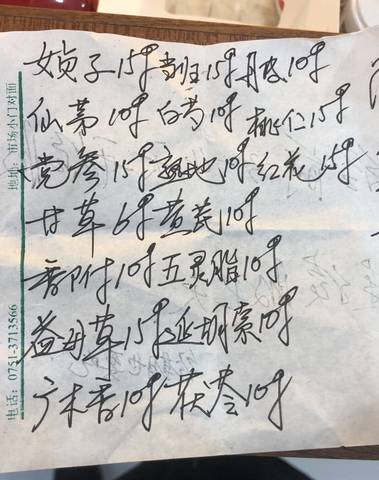 女贞子15g 当归15g 丹皮10g
仙茅10g 白芍10g 桃仁15g
党参15g 熟地10g 红花15g
甘草6g 黄芪10g
香附10g 五灵脂10g
益母草15g 延胡索10g
广木香10g 茯苓10g
地址：市场小门对面
电话：0751-3713566